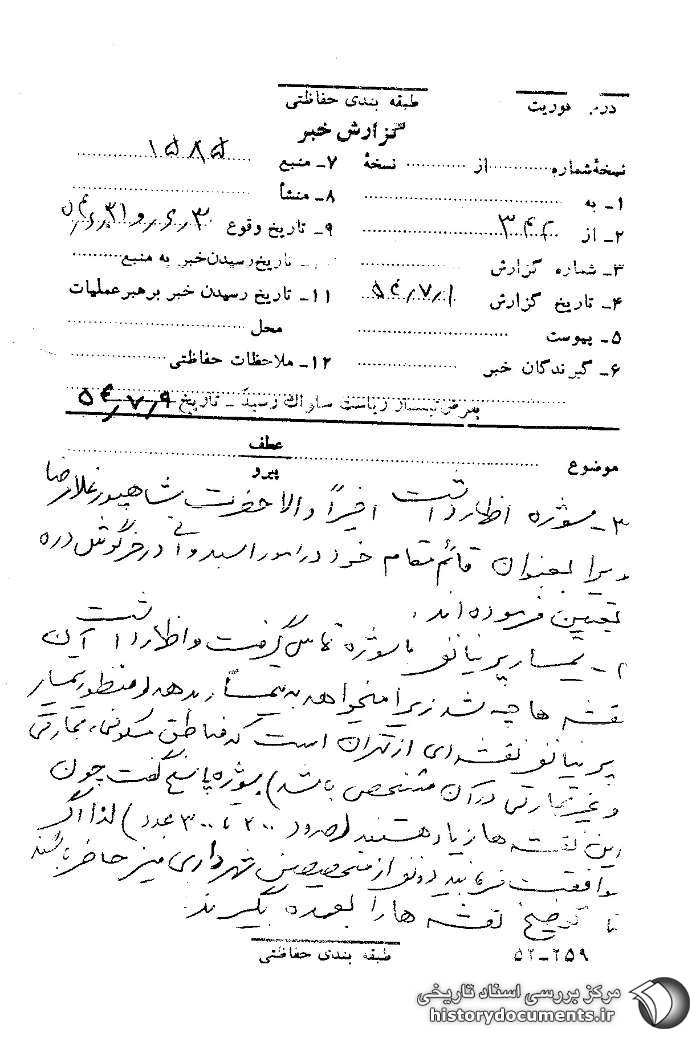 طبقه بندی حفاظتی
گزارش خبر
نسخهٔ شماره ............ از ............ نسخهٔ
۷ـ منبع ۱۵۸۵
۱ـ به
۸ـ منشأ
۲ـ از ۳۴۲
۹ـ تاریخ وقوع
۳ـ شماره گزارش
تاریخ رسیدن خبر به منبع
۴ـ تاریخ گزارش ۵۴٫۷٫۱
۱۱ـ تاریخ رسیدن خبر برهبر عملیات
۵ـ پیوست
محل
۶ـ گیرندگان خبر
۱۲ـ ملاحظات حفاظتی
ریاست ساواک رسید ـ تاریخ ۵۴٫۷٫۹
عطف
موضوع
پیرو
۳ـ سوژه اظهار داشت اخیراً والاحضرت شاهپور غلامرضا
ویرا بعنوان قائم مقام خود در امور اسبدوانی در خرگوش دره
تعیین فرموده اند.
تیمسار پرنیانفر با سوژه تماس گرفت و اظهار داشت این
نقشه ها چه شد زیرا میخواهد به تیمسار بدهد (منظور تیمسار
پرنیانفر نقشه ای از تهران است که مناطق مسکونی، تجارتی
و غیرتجارتی در آن مشخص باشد) سوژه پاسخ گفت چون
این نقشه ها زیاد هستند (حدود ۲۰۰ تا ۳۰۰ عدد) لذا اگر
موافقت فرمائید دو نفر از متخصصین شهرداری نیز حاضر باشند
تا توضیح نقشه ها را بعهده بگیرند.
۵۲ـ۲۵۹
طبقه بندی حفاظتی
مرکز بررسی اسناد تاریخی
historydocuments.ir